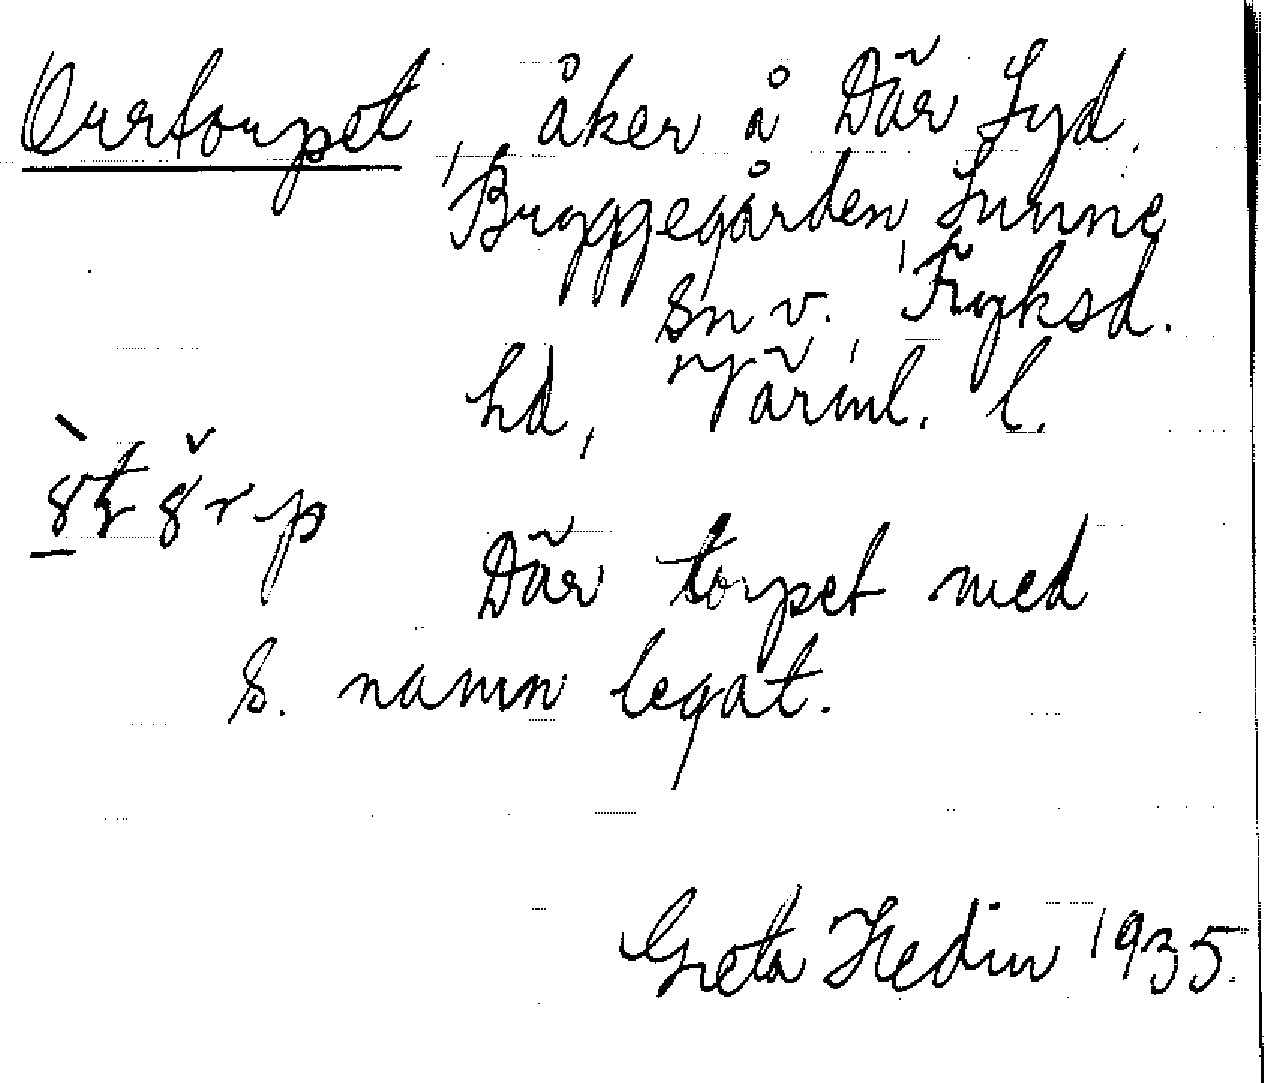 Övertorpet, åker å Där Syd.
Bryggegården, Sunne
sn v., Fryksd.
hd, Värml. l.
Där torpet med
s. namn legat.
Greta Hedin 1935.